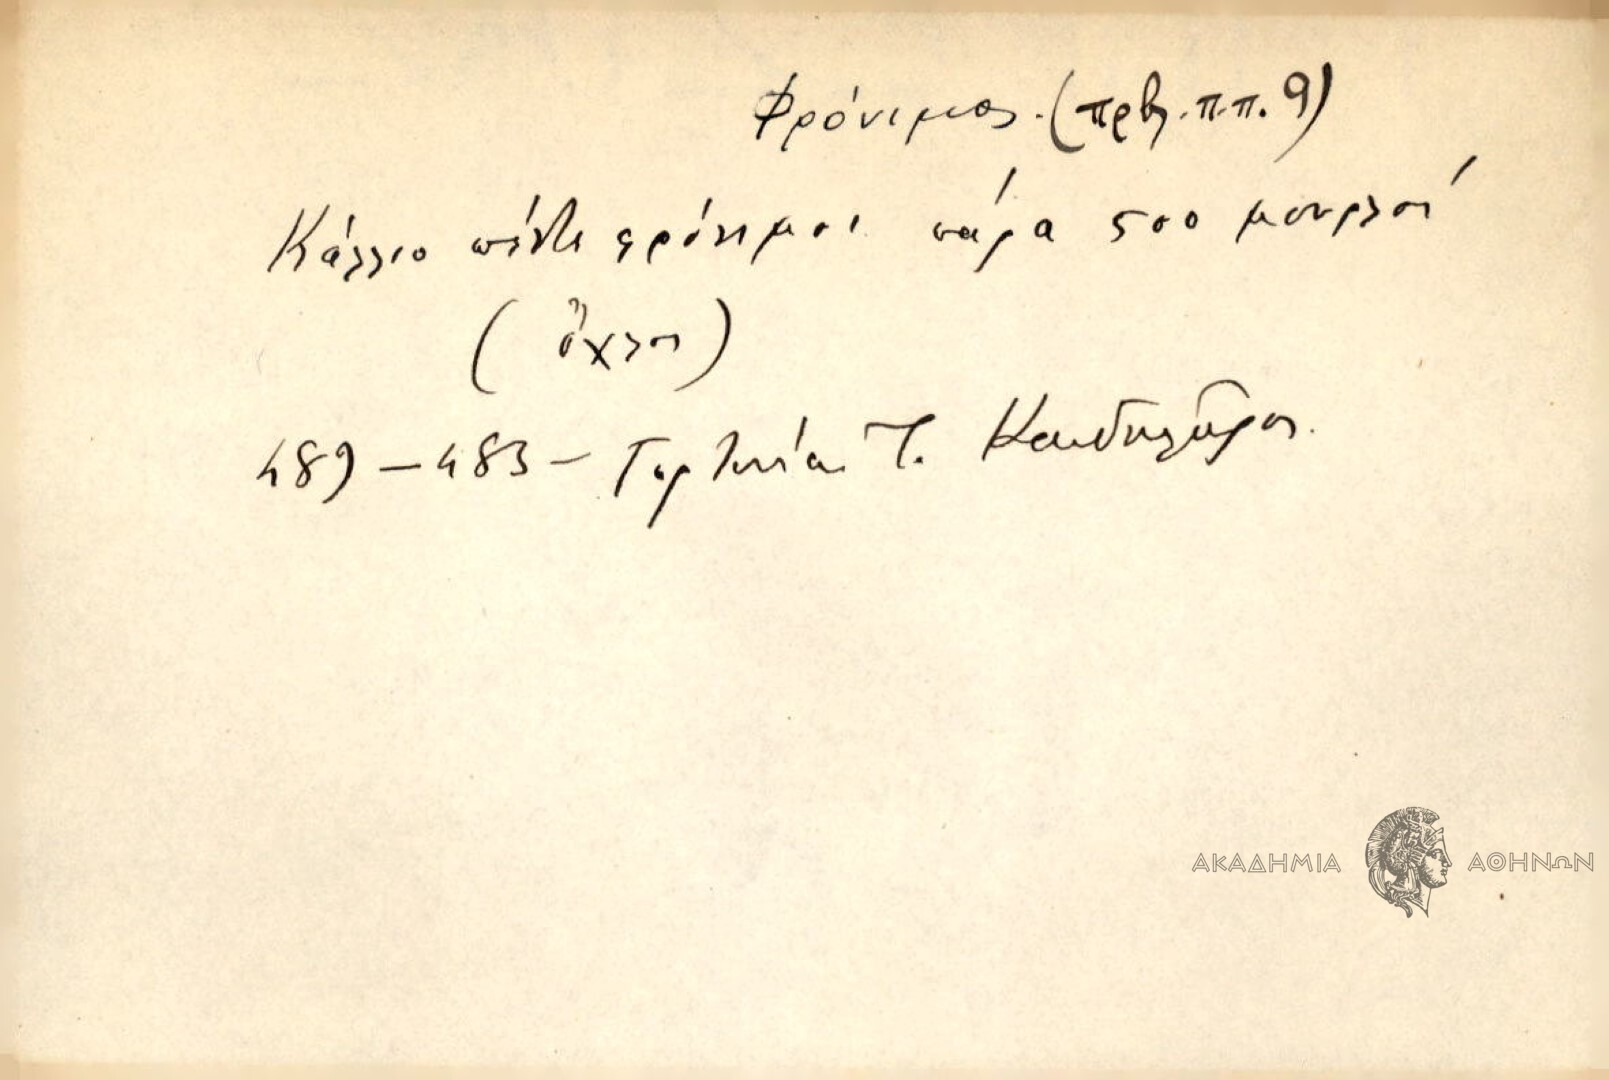 Φρόνιμος. (πρβλ. π.π. 9)
Κάλλιο πέντε φρόνιμοι πάρα 500 μουρλοί
(ὄχλος)
489 – 483 – Γορτυνία Τ. Κανδηλῶρος.
ΑΚΑΔΗΜΙΑ ΑΘΗΝΩΝ